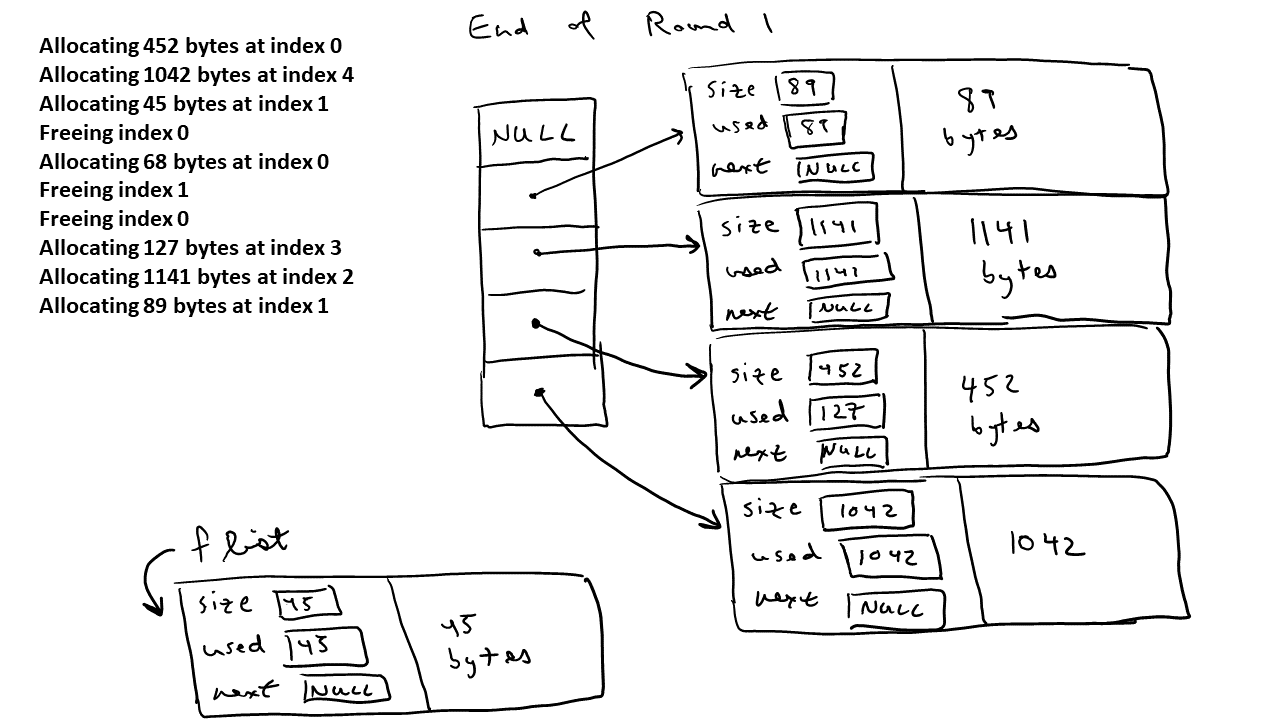 End of Round 1
Allocating 452 bytes at index 0
Allocating 1042 bytes at index 4
Allocating 45 bytes at index 1
Freeing index 0
Allocating 68 bytes at index 0
Freeing index 1
Freeing index 0
Allocating 127 bytes at index 3
Allocating 1141 bytes at index 2
Allocating 89 bytes at index 1
NULL
size 89
used 89
next NULL
89
bytes
size 1141
used 1141
next NULL
1141
bytes
size 452
used 127
next NULL
452
bytes
size 1042
used 1042
next NULL
1042
flist
size 45
used 45
next NULL
45
bytes